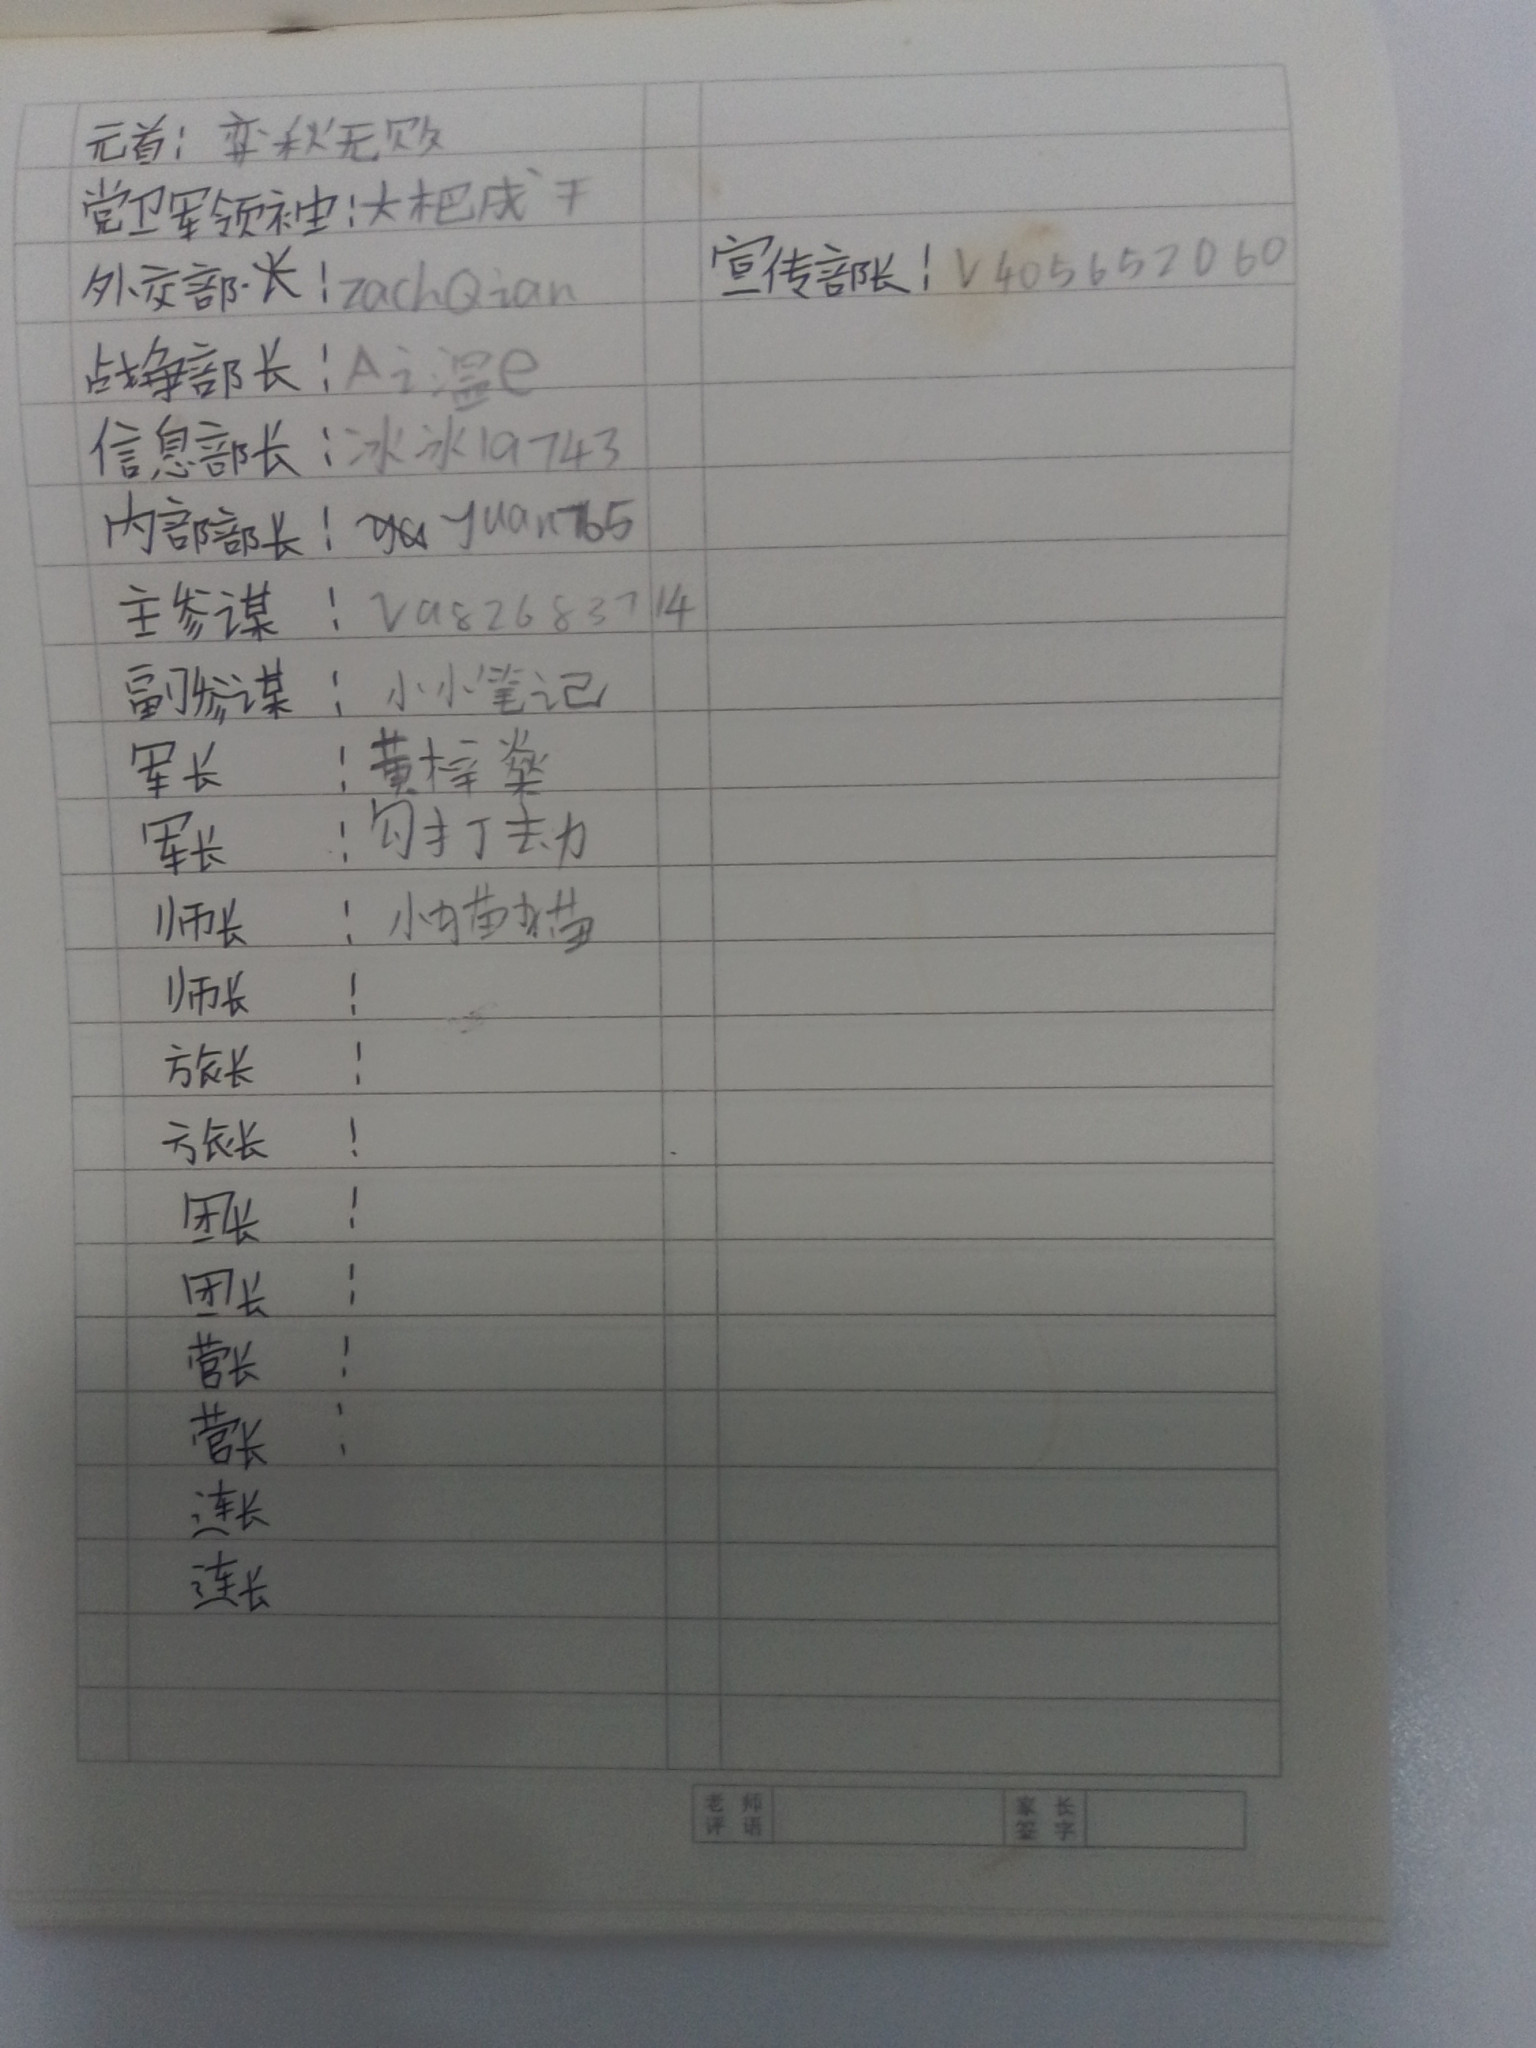 元首：弈秋无败
党卫军领袖：大杷成干
外交部长：zachQian
宣传部长：V405652060
战争部长：Ai温e
信息部长：冰冰19743
内部部长：yuan765
主参谋：V982683714
副参谋：小小笔记
军长：黄梓燊
军长：
师长：小猫猫
师长：
旅长：
旅长：
团长：
团长：
营长：
营长：
连长
连长
老师评语
家长签字